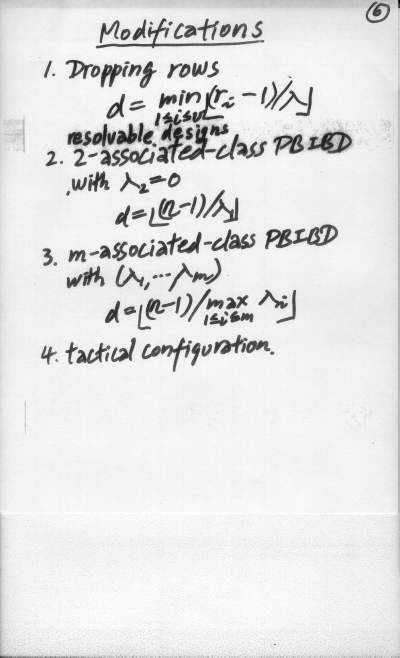 6
Modifications
1. Dropping rows
d = min ⌊(r_i - 1)/λ⌋
1≤i≤v
resolvable designs
2. 2-associated-class PBIBD
with λ₂=0
d=⌊(r-1)/λ₁⌋
3. m-associated-class PBIBD
with (λ₁,⋯,λ_m)
d=⌊(r-1)/max λ_i⌋
1≤i≤m
4. tactical configuration.